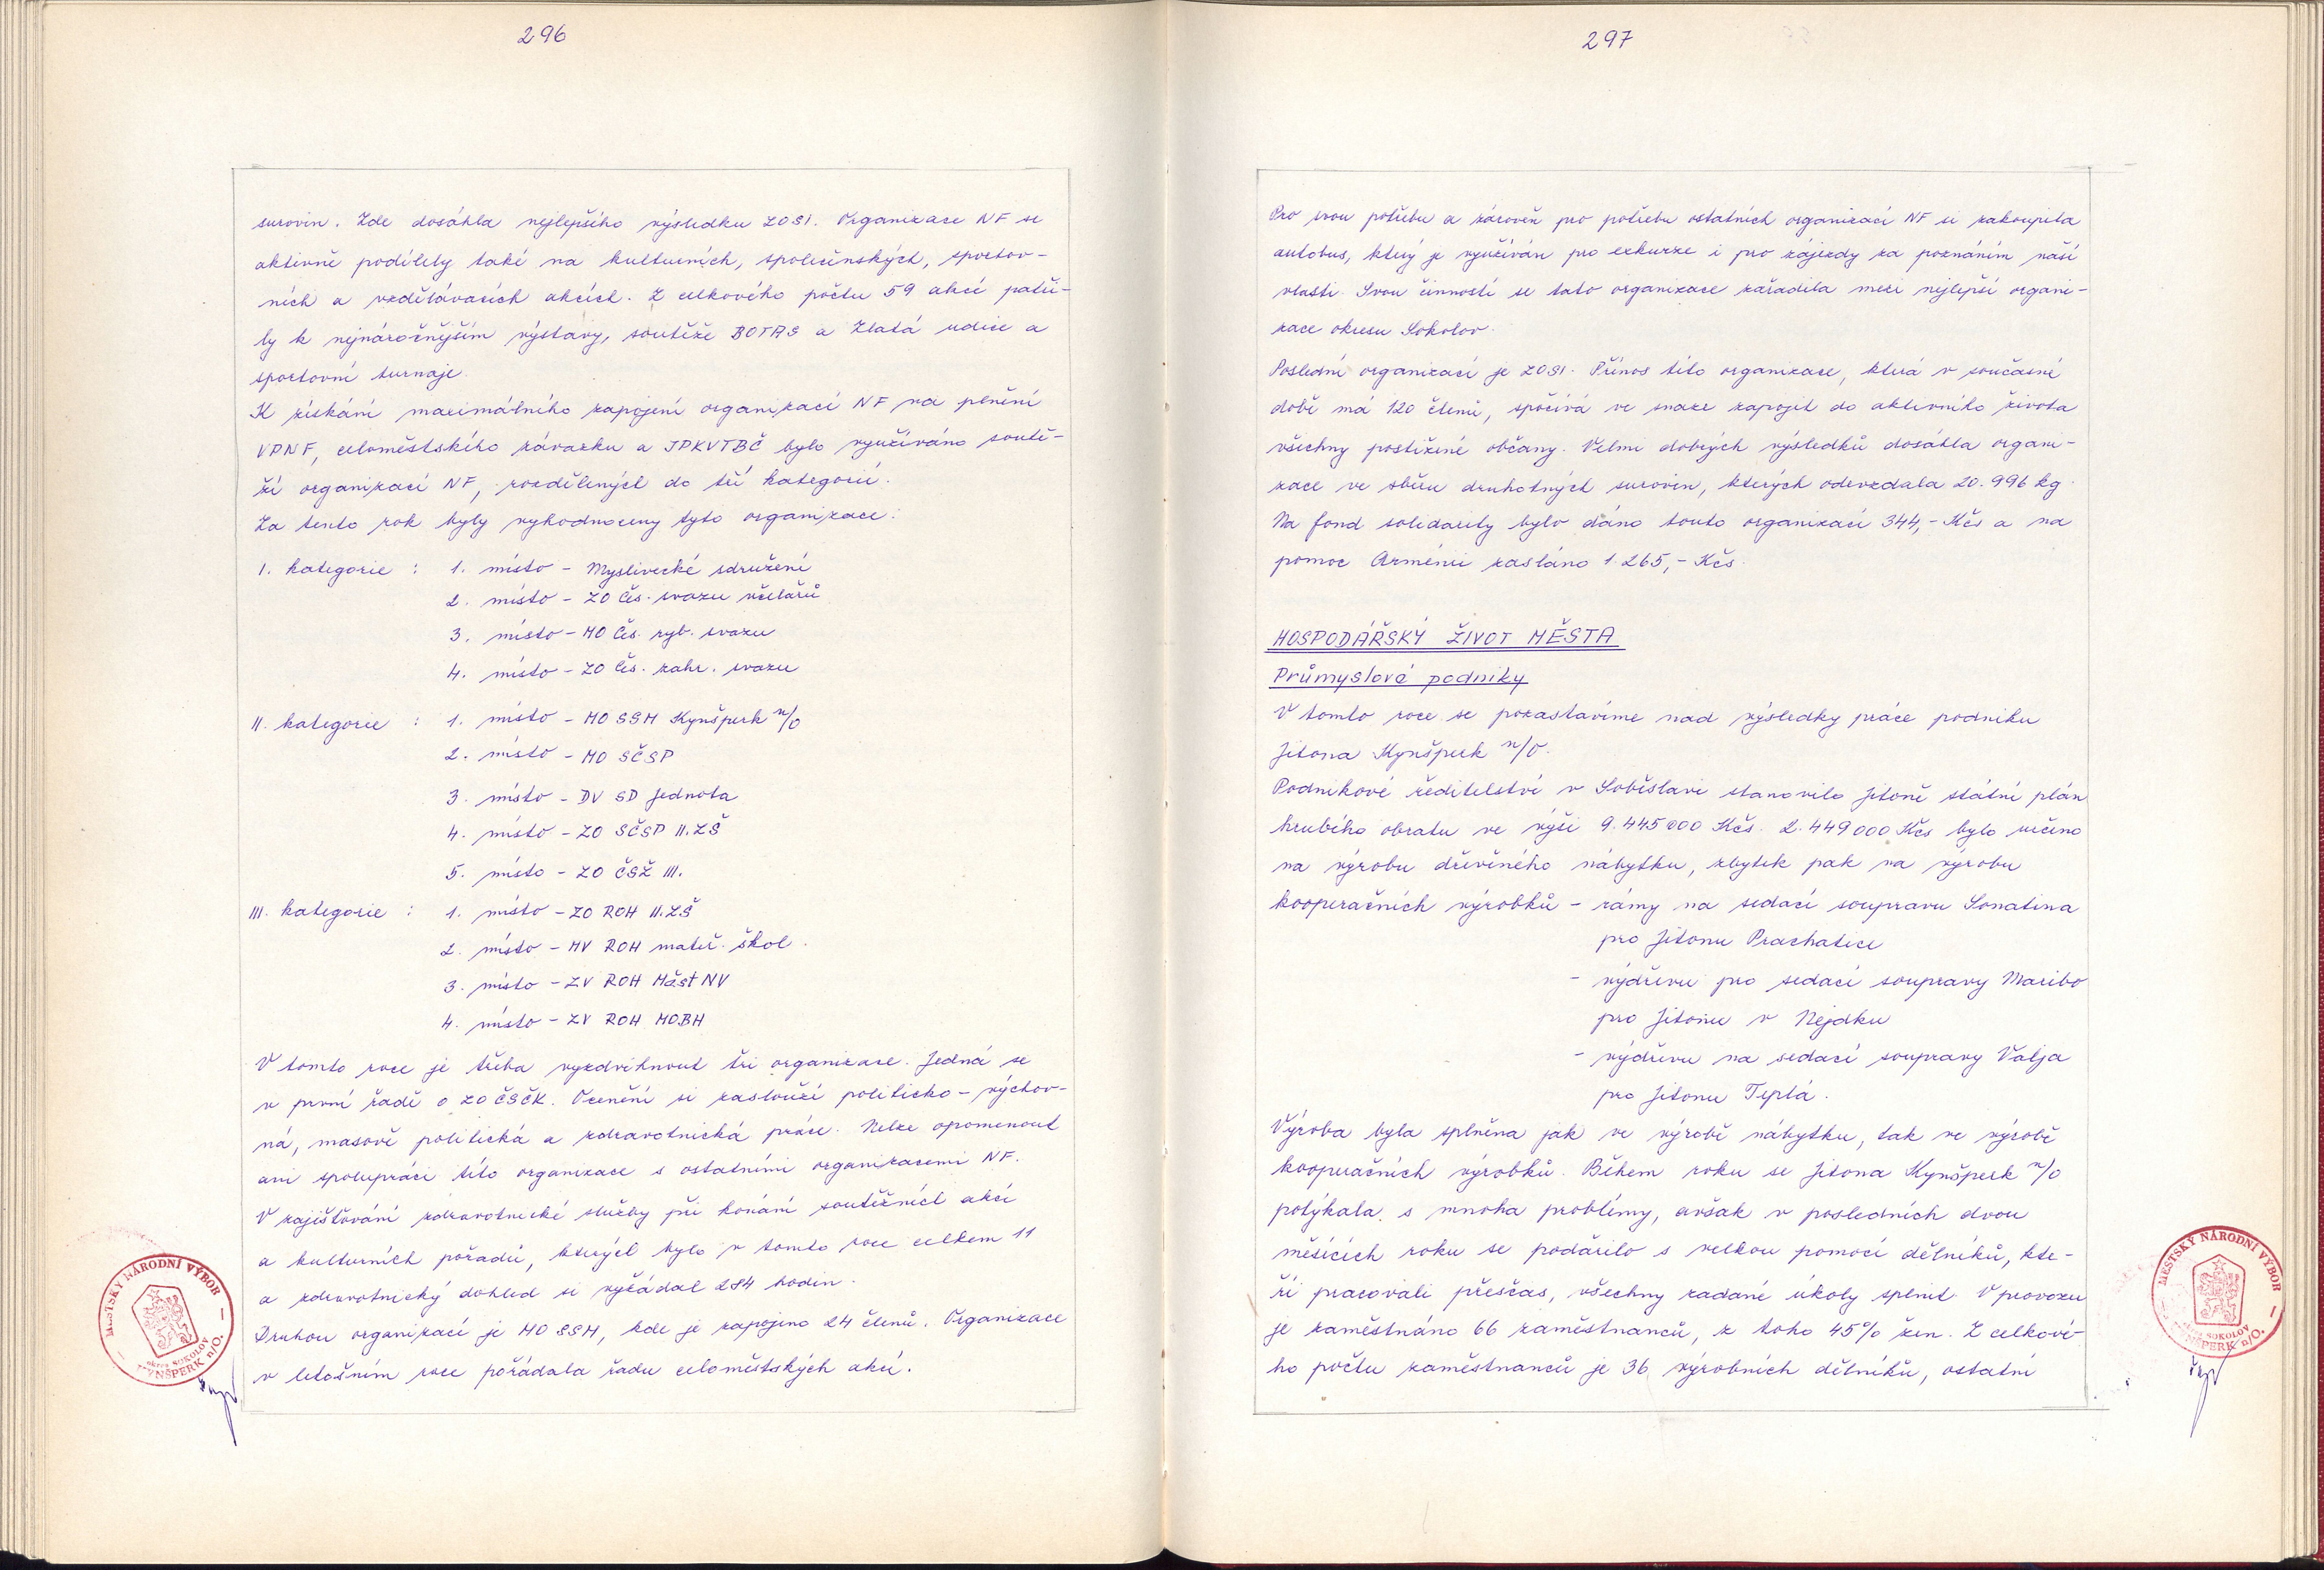 296
surovin. Zde dosáhla nejlepšího výsledku ZOSI. Organizace NF se
aktivně podílely také na kulturních, společenských, sportov-
ních a vzdělávacích akcích. Z celkového počtu 59 akcí patři-
ly k nejnáročnějším výstavy, soutěže BOTAS a Zlatá udice a
sportovní turnaje.
K získání maximálního zapojení organizací NF na plnění
VPNF, celoměstského závazku a JPKVTBČ bylo využíváno soutě-
ží organizací NF, rozdělených do tří kategorií.
Za tento rok byly vyhodnoceny tyto organizace:
I. kategorie : 1. místo - Myslivecké sdružení
2. místo - ZO Čes. svazu včelařů
3. místo - MO Čes. ryb. svazu
4. místo - ZO Čes. zahr. svazu
II. kategorie : 1. místo - MO SSM Kynšperk n/O
2. místo - MO SČSP
3. místo - DV SD Jednota
4. místo - ZO SČSP II. ZŠ
5. místo - ZO ČSŽ III.
III. kategorie : 1. místo - ZO ROH II. ZŠ
2. místo - MV ROH mateř. škol.
3. místo - ZV ROH MěstNV
4. místo - ZV ROH MOBH
V tomto roce je třeba vyzdvihnout tři organizace. Jedná se
v první řadě o ZO ČSČK. Ocenění si zaslouží politicko - výchov-
ná, masově politická a zdravotnická práce. Nelze opomenout
ani spolupráci této organizace s ostatními organizacemi NF.
V zajišťování zdravotnické služby při konání soutěžních akcí
a kulturních pořadů, kterých bylo v tomto roce celkem 11
a zdravotnický dohled si vyžádal 284 hodin.
Druhou organizací je MO SSM, kde je zapojeno 24 členů. Organizace
v letošním roce pořádala řadu celoměstských akcí.
MĚSTSKÝ NÁRODNÍ VÝBOR
okres SOKOLOV
KYNŠPERK n/O.
297
Pro svou potřebu a zároveň pro potřebu ostatních organizací NF si zakoupila
autobus, který je využíván pro exkurze i pro zájezdy za poznáním naší
vlasti. Svou činností se tato organizace zařadila mezi nejlepší organi-
zace okresu Sokolov.
Poslední organizací je ZOSI. Přínos této organizace, která v současné
době má 120 členů, spočívá ve snaze zapojit do aktivního života
všechny postižené občany. Velmi dobrých výsledků dosáhla organi-
zace ve sběru druhotných surovin, kterých odevzdala 20.996 kg.
Na fond solidarity bylo dáno touto organizací 344,- Kčs a na
pomoc Arménii zasláno 1.265,- Kčs.
HOSPODÁŘSKÝ ŽIVOT MĚSTA
Průmyslové podniky
V tomto roce se pozastavíme nad výsledky práce podniku
Jitona Kynšperk n/O.
Podnikové ředitelství v Soběslavi stanovilo Jitoně státní plán
hrubého obratu ve výši 9.445 000 Kčs. 2.449 000 Kčs bylo určeno
na výrobu dřevěného nábytku, zbytek pak na výrobu
kooperačních výrobků - rámy na sedací soupravu Sonatina
pro Jitonu Prachatice
- výdřevu pro sedací soupravy Maribo
pro Jitonu v Nejdku
- výdřevu na sedací soupravy Valja
pro Jitonu Teplá.
Výroba byla splněna jak ve výrobě nábytku, tak ve výrobě
kooperačních výrobků. Během roku se Jitona Kynšperk n/O
potýkala s mnoha problémy, avšak v posledních dvou
měsících roku se podařilo s velkou pomocí dělníků, kte-
ří pracovali přesčas, všechny zadané úkoly splnit. V provozu
je zaměstnáno 66 zaměstnanců, z toho 45% žen. Z celkové-
ho počtu zaměstnanců je 36 výrobních dělníků, ostatní
MĚSTSKÝ NÁRODNÍ VÝBOR
okres SOKOLOV
KYNŠPERK n/O.